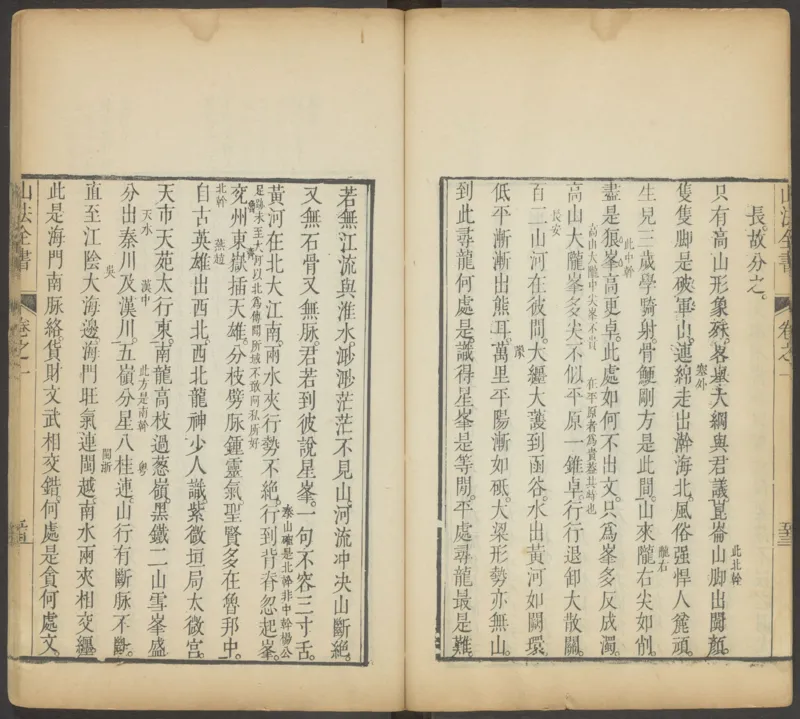 長故分之。
只有高山形象殊。畧舉大綱與君議。崑崙山脚出闐顏。
此北幹
隻隻脚是破軍山。連綿走出瀚海北。風俗强悍人麄頑。
塞外
生兒三歲學騎射。骨鯁剛方是此間。山來隴右尖如削。
隴右
盡是狼峯高更卓。此處如何不出文。只爲峯多反成濁。
此中幹
高山大隴峯多尖。不似平原一錐卓。行行退卸大散關。
高山大隴中尖峯不貴
在平原者為貴蓋其時也
百二山河在彼間。大纏大護到函谷。水出黃河如闕環。
長安
低平漸漸出熊耳。萬里平陽漸如砥。大梁形勢亦無山。
到此尋龍何處是。識得星峯是等閒。平處尋龍最是難。
若無江流與淮水。渺渺茫茫不見山。河流冲决山斷絶。
又無石骨又無脉。君若到彼說星峯。一句不容三寸舌。
黃河在北大江南。兩水夾行勢不絶。行到背脊忽起峯。
泰山確是北幹非中幹楊公
兖州東嶽插天雄。分枝劈脉鍾靈氣。聖賢多在魯邦中。
自古英雄出西北。西北龍神少人識。紫微垣局太微宫。
北幹
燕趙
天市天苑太行東。南龍高枝過葱嶺。黑鐵二山雪峯盛
分出秦川及漢川。五嶺分星八桂連。山行有斷脉不斷。
天水
漢中
此方是南幹
粤
直至江陰大海邊。海門旺氣連閩越。南水兩夾相交纏。
吳
閩浙
此是海門南脉絡。貨財文武相交錯。何處是貪何處文。
山法全書
卷之一